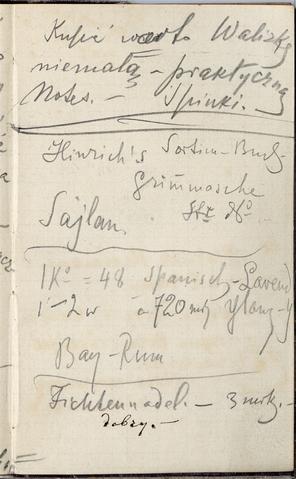 Kupić walizkę
niemałą – praktyczną
Notes. – Spinki. –
Hinrich's Sortim-Buch-
Grimmasche
Str. No
Sajlan.
1 Ko = 48 Spanisch-Lavend
1–2 à 720 mk Ylang-Y
Bay-Rum
Fichtennadel. – 3 mrk. –
dobry. –